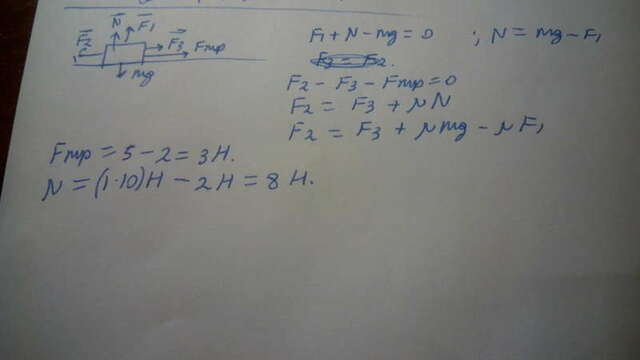 N F₁
F₂ F₃ Fтр
mg
F₁ + N − mg = 0 ; N = mg − F₁
F₃ = F₂.
F₂ − F₃ − Fтр = 0
F₂ = F₃ + μN
F₂ = F₃ + μmg − μF₁
Fтр = 5 − 2 = 3Н.
N = (1·10)Н − 2Н = 8Н.